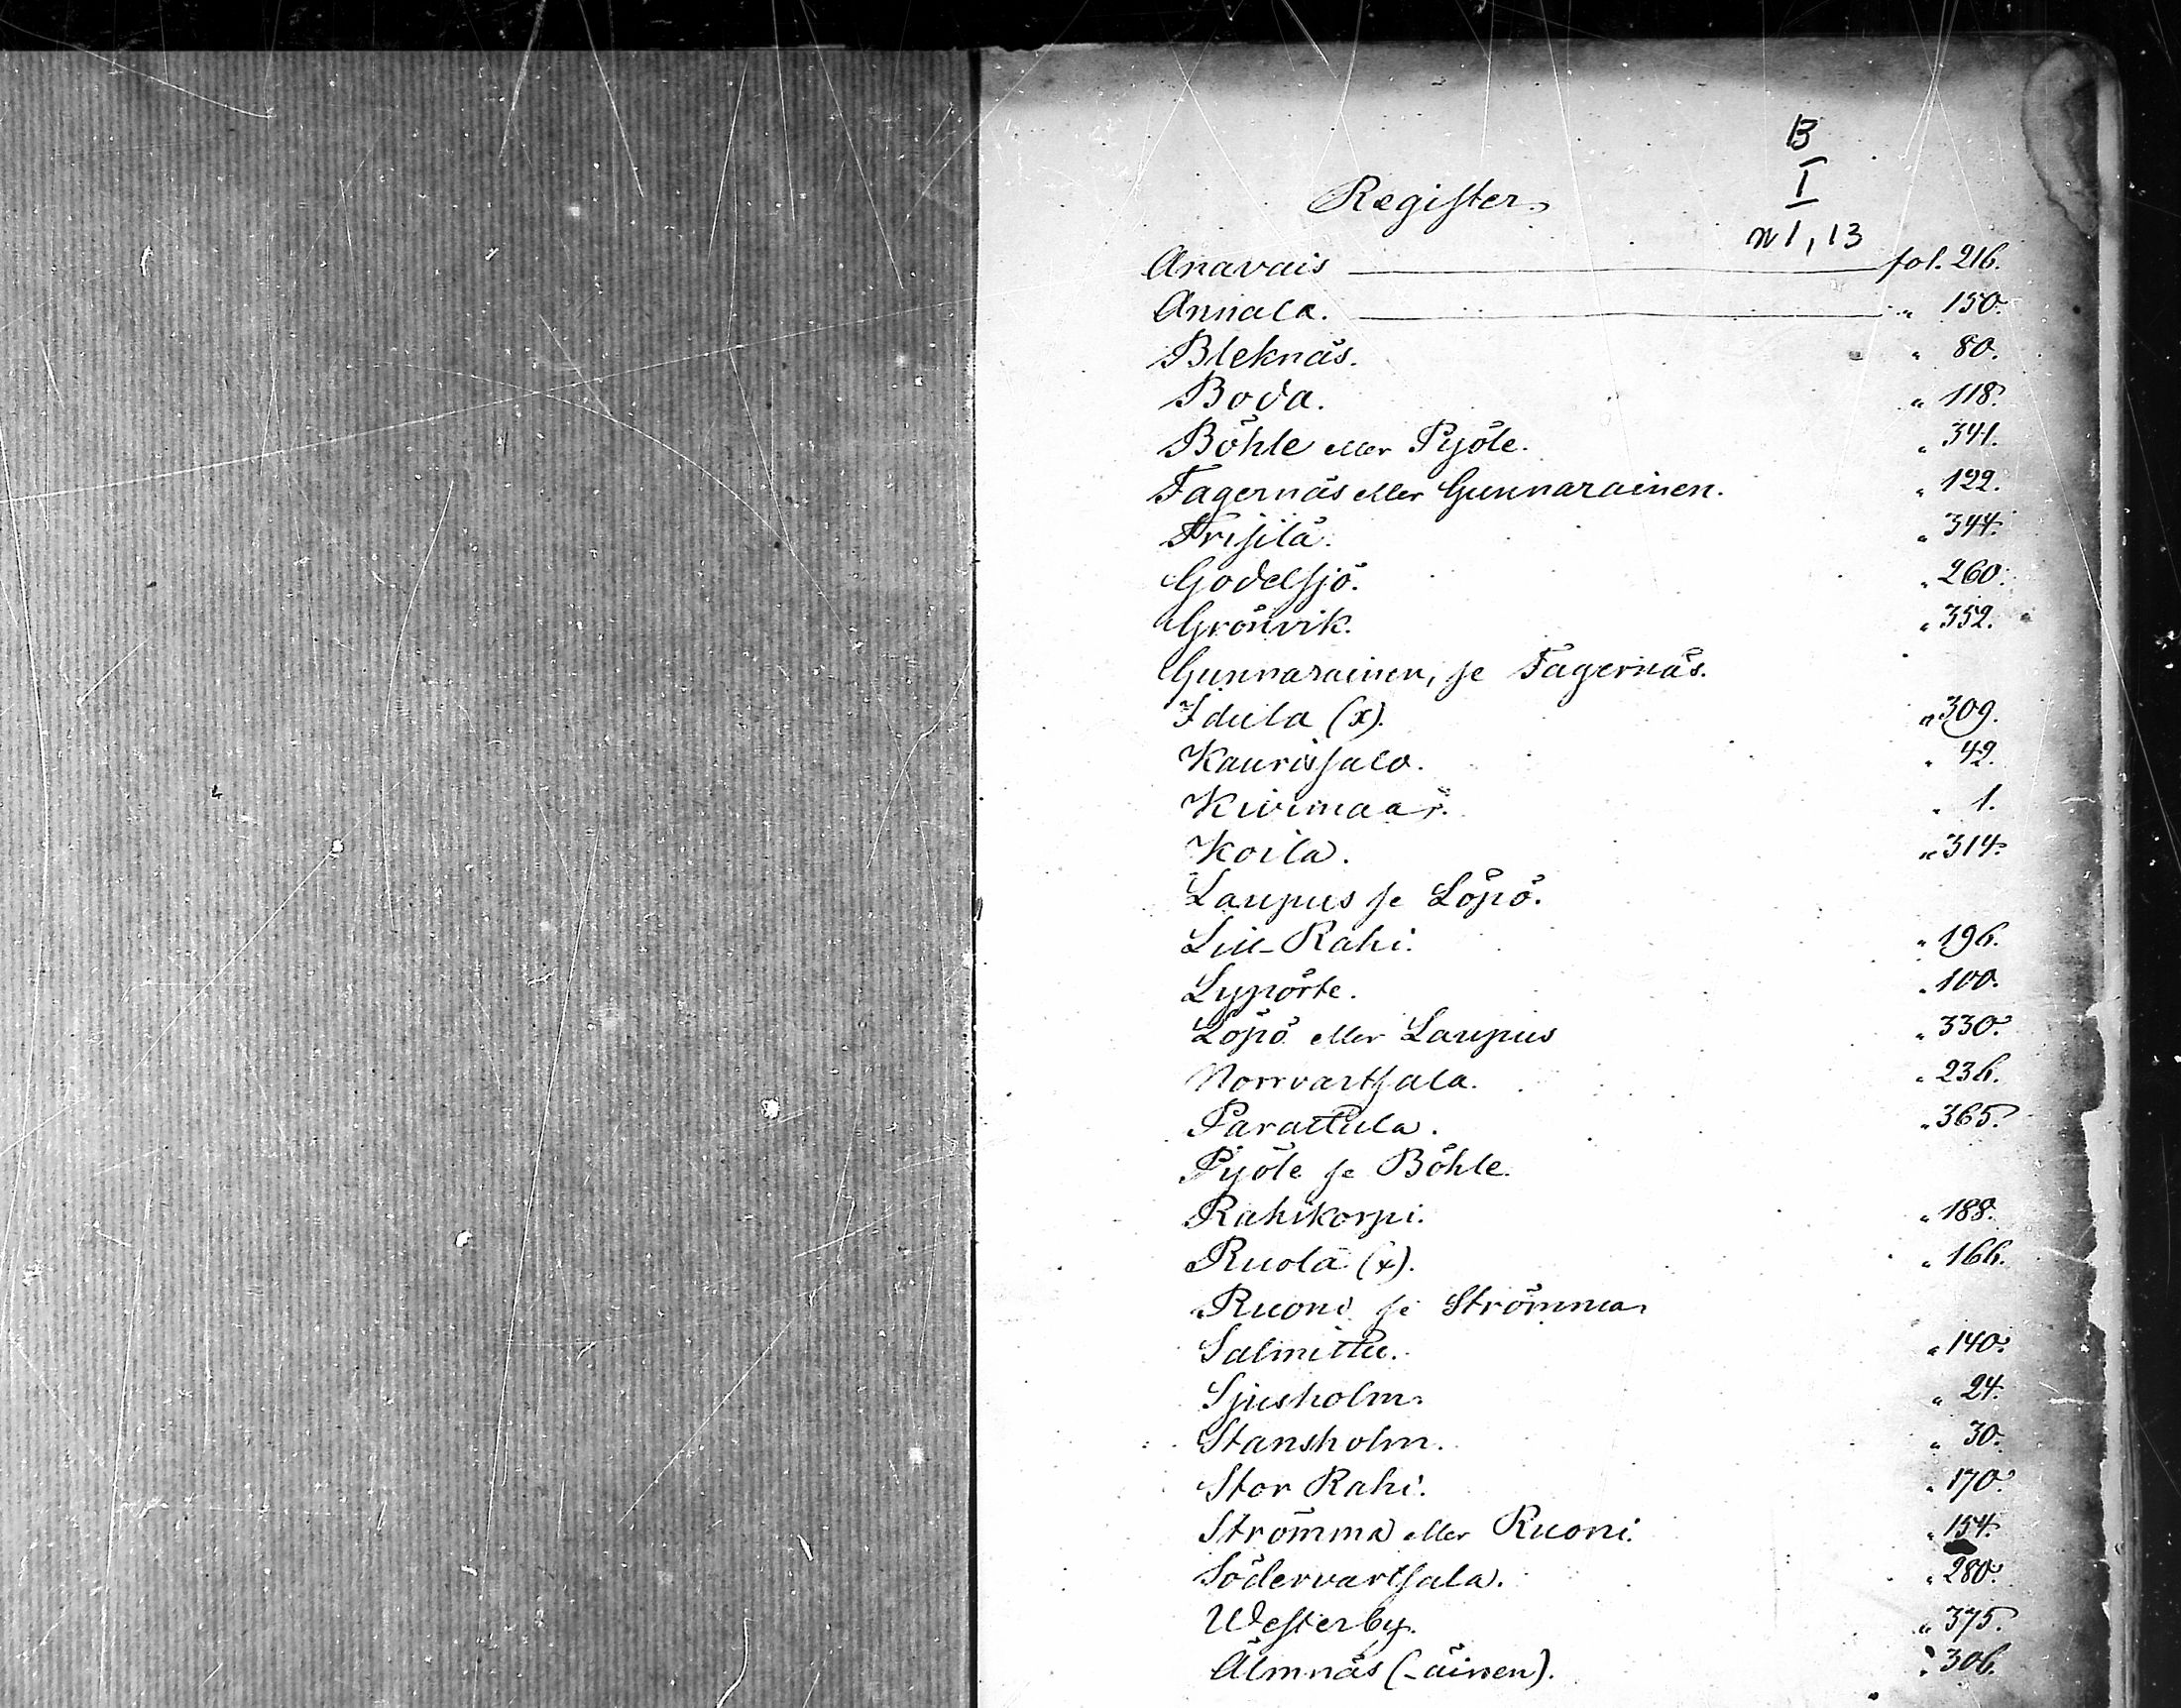 B
I
n 1, 13
Register
Anavais fol. 216.
Annala. " 150.
Bleknäs. " 80.
Boda. " 118.
Böhle eller Pyöle. " 341.
Fagernäs eller Gunnarainen. " 122.
Frisilä. " 344.
Godelsjö. " 260.
Grönvik. " 352.
Gunnarainen, se Fagernäs.
Idula (x). " 309.
Kaurissalo. " 42.
Kivimaa. " 1.
Koila. " 314.
Laupus se Löpö.
Lill-Rahi. " 196.
Lypörte. " 100.
Löpö eller Laupus " 330.
Norrvartsala. " 236.
Parattula. " 365.
Pyöle se Böhle.
Rahikorpi. " 188.
Ruola (x). " 166.
Ruoni se Strömma
Salmittu. " 140.
Sjusholm. " 24.
Stansholm. " 30.
Stor Rahi. " 170.
Strömma eller Ruoni. " 154.
Södervartsala. " 280.
Westerby. " 375.
Älmnäs (-äinen). " 306.